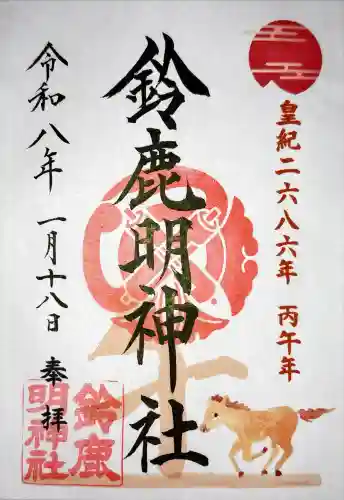 皇紀二六八六年 丙午年
鈴鹿明神社
令和八年 一月十八日 奉拝
鈴鹿
明神社